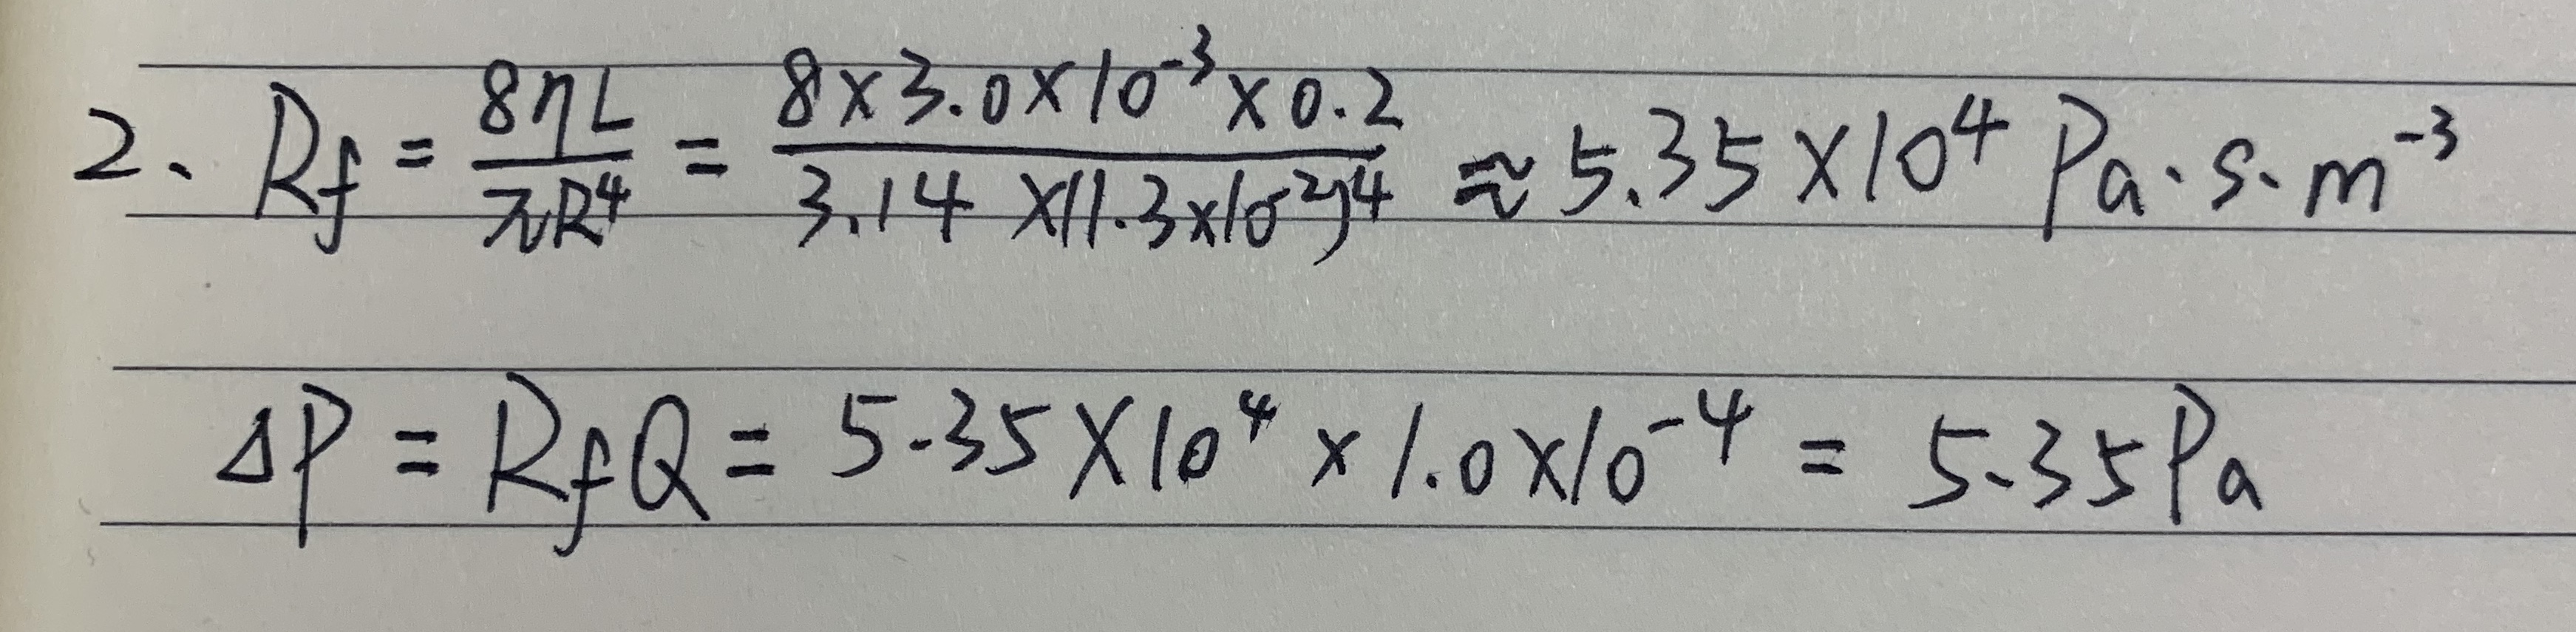 2、 Rf = 8ηL/πR⁴ = 8×3.0×10⁻³×0.2/3.14×(1.3×10⁻²)⁴ ≈ 5.35×10⁴ Pa·s·m⁻³
ΔP = RfQ = 5.35×10⁴×1.0×10⁻⁴ = 5.35Pa